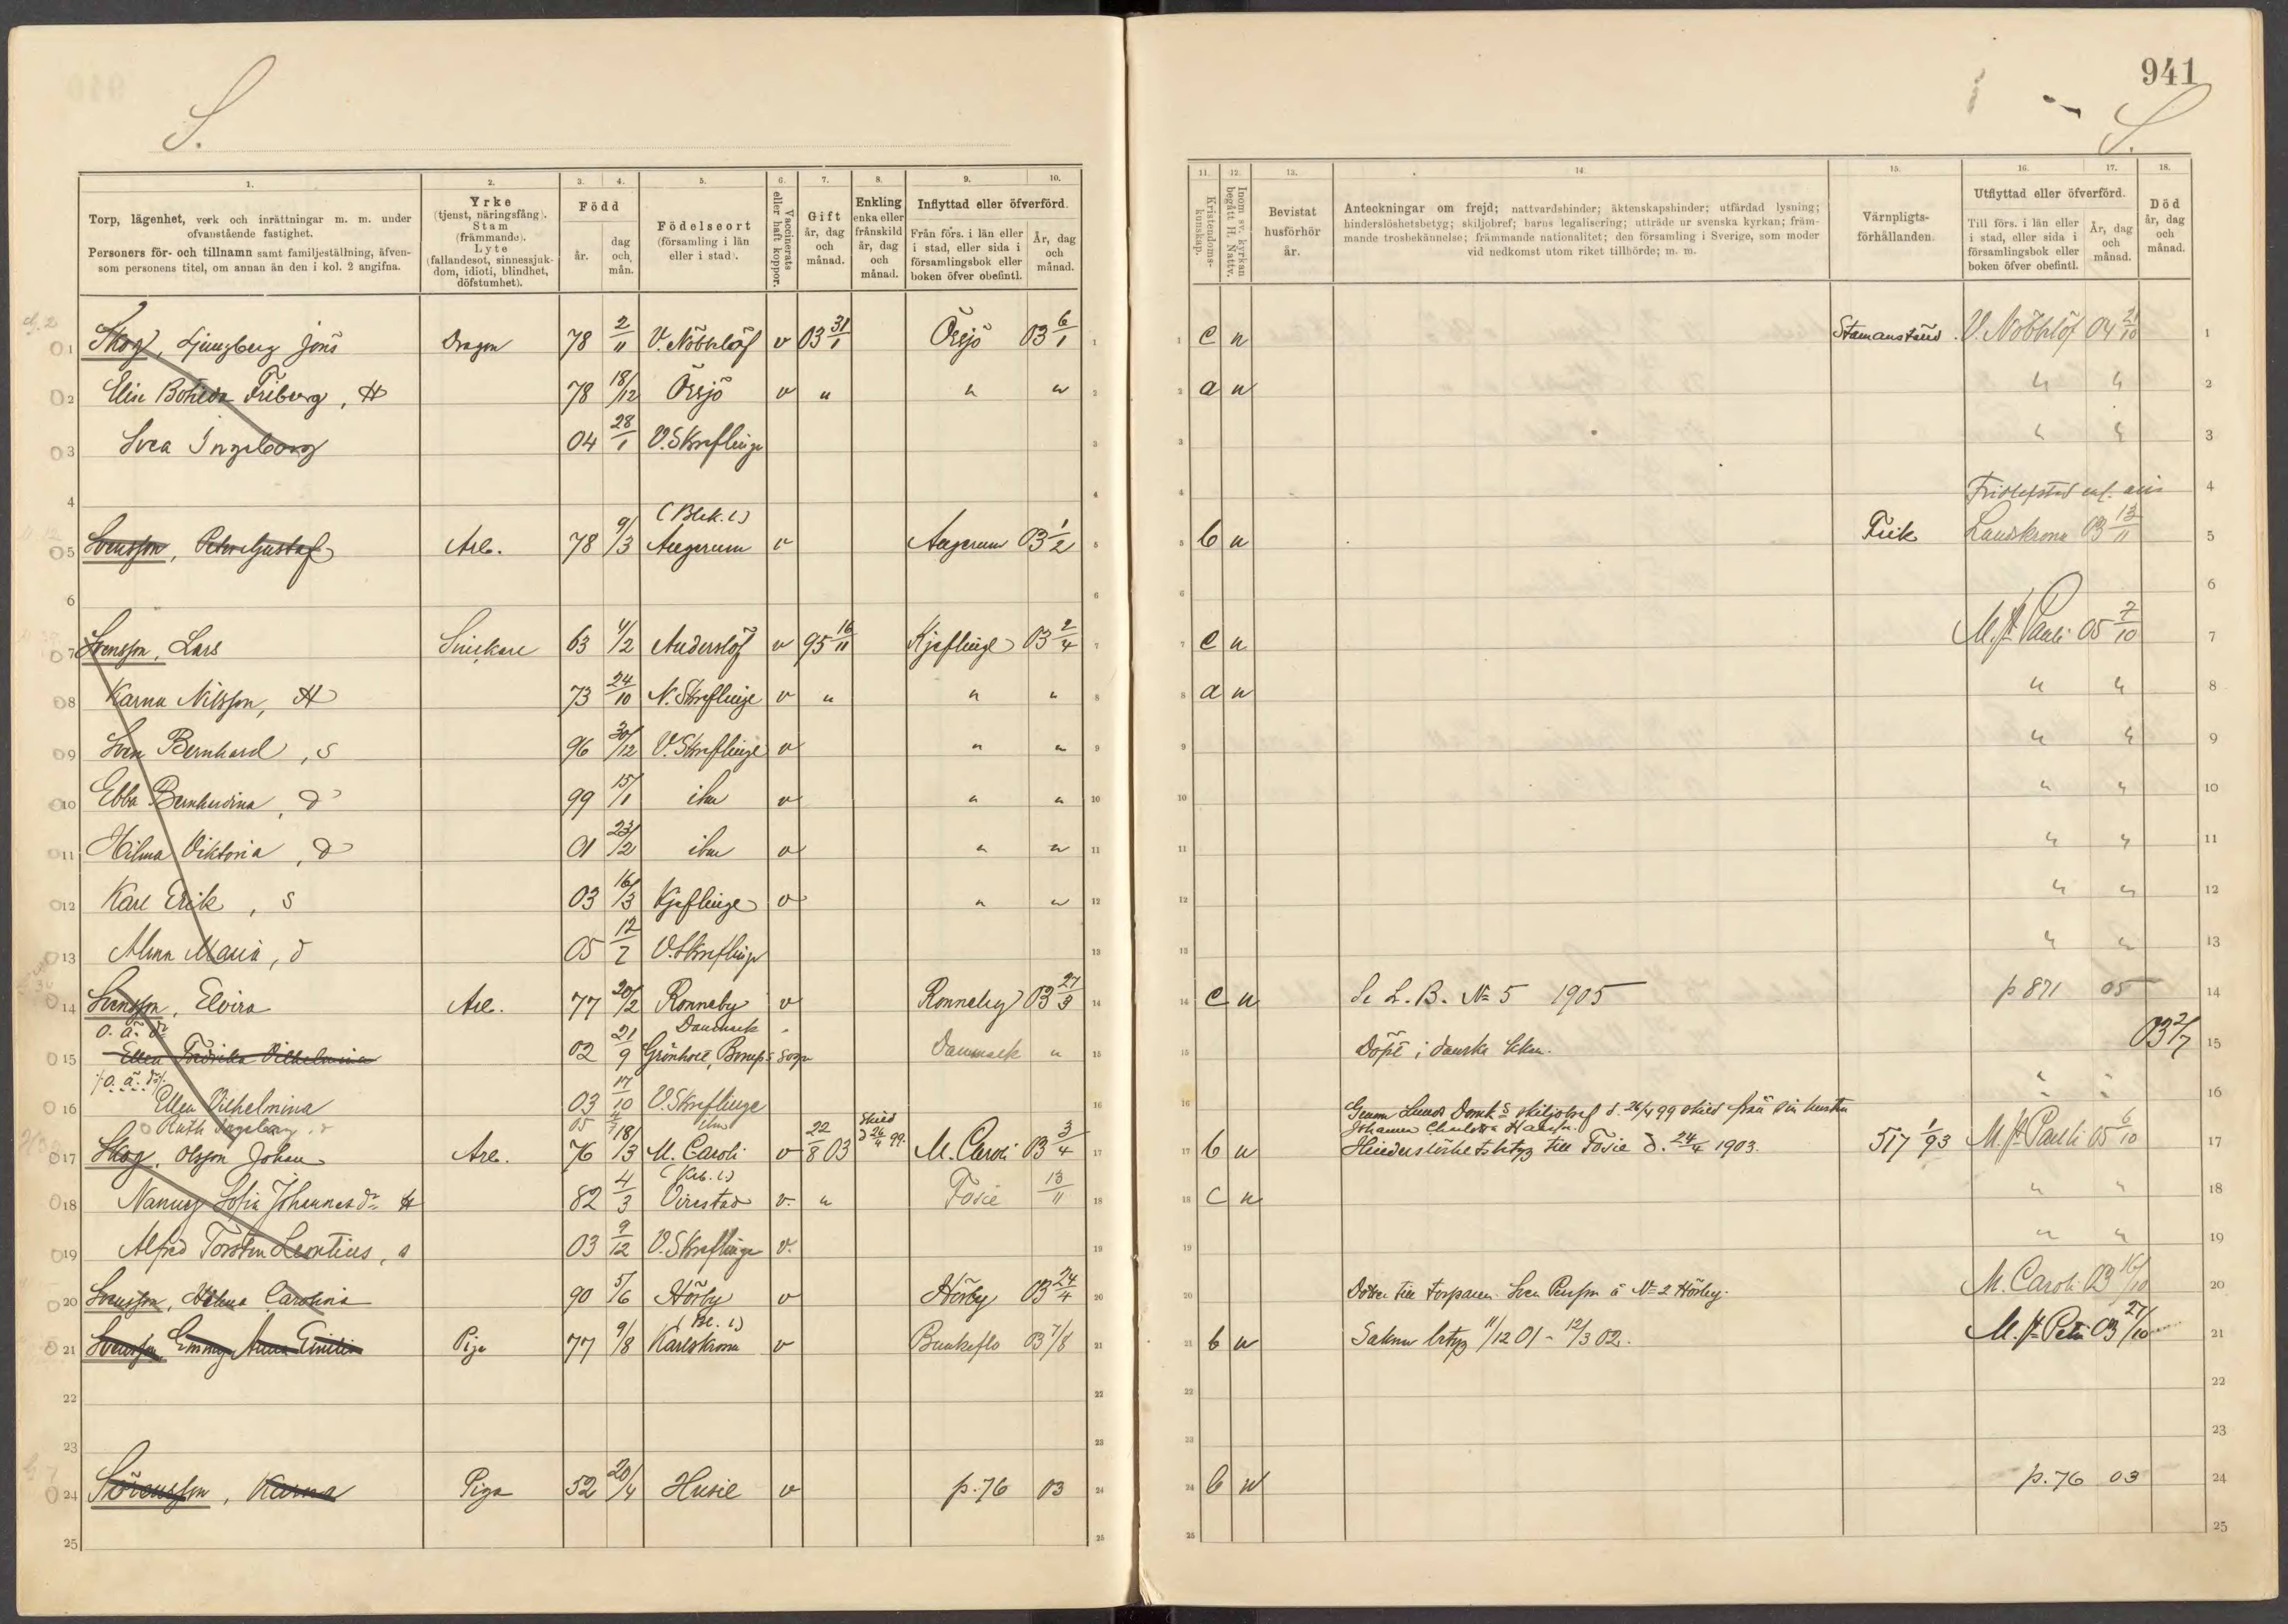 941
S.
S.
1.
2.
3.
4.
5.
6.
7.
8.
9.
10.
Torp, lägenhet, verk och inrättningar m. m. under
ofvanstående fastighet.
Personers för- och tillnamn samt familjeställning, äfven-
som personens titel, om annan än den i kol. 2 angifna.
Yrke
(tjenst, näringsfång).
Stam
(främmande).
Lyte
(fallandesot, sinnessjuk-
dom, idioti, blindhet,
döfstumhet).
Född
år.
dag
och
mån.
Födelseort
(församling i län
eller i stad).
Vaccinerats
eller haft koppor.
Gift
år, dag
och
månad.
Enkling
enka eller
frånskild
år, dag
och
månad.
Inflyttad eller öfverförd.
Från förs. i län eller
i stad, eller sida i
församlingsbok eller
boken öfver obefintl.
År, dag
och
månad.
11.
12.
13.
14.
15.
16.
17.
18.
Kristendoms-
kunskap.
Inom sv. kyrkan
begått H. Nattv.
Bevistat
husförhör
år.
Anteckningar om frejd; nattvardshinder; äktenskapshinder; utfärdad lysning;
hinderslöshetsbetyg; skiljobref; barns legalisering; utträde ur svenska kyrkan; främ-
mande trosbekännelse; främmande nationalitet; den församling i Sverige, som moder
vid nedkomst utom riket tillhörde; m. m.
Värnpligts-
förhållanden.
Utflyttad eller öfverförd.
Till förs. i län eller
i stad, eller sida i
församlingsbok eller
boken öfver obefintl.
År, dag
och
månad.
Död
år, dag
och
månad.
1 Skog, Ljungberg Jöns Dragon 78 2/11 V. Nöbbelöf v 03 31/1 Örsjö 03 6/1 1 c n Stamanställd. V. Nöbbelöf 04 21/10 1
2 Elin Bothilda Friberg, H 78 18/12 Örsjö v " " " 2 a n " " 2
3 Svea Ingeborg 04 28/1 V. Skreflinge 3 " " 3
4 (Blek. l) 4 Fridlefstad enl. 4
5 Svensson, Peter Gustaf Arb. 78 9/3 Augerum v Augerum 03 1/2 5 b n Frik Landskrona 03 13/11 5
6 6 6
7 Svensson, Lars Snickare 63 4/2 Anderslöf v 95 16/11 Kjeflinge 03 2/4 7 c n M. St Pauli 05 7/10 7
8 Karna Nilsson, H 73 24/10 N. Skreflinge v " " " 8 a n " " 8
9 Sven Bernhard, S 96 30/12 V. Skreflinge v " " 9 " " 9
10 Ebba Bernhardina, d 99 15/1 ibm v " " 10 " " 10
11 Hilma Viktoria, d 01 23/2 ibm v " " 11 " " 11
12 Karl Erik, S 03 16/3 Kjeflinge v " " 12 " " 12
13 Alma Maria, d 05 12/7 V. Skreflinge 13 " " 13
14 Svensson, Elvira Arb. 77 20/2 Ronneby v Ronneby 03 27/3 14 c n Se L. B. No 5 1905 p 871 05 14
o. ä. dr Danmark
15 Ellen Fredrika Vilhelmina 02 21/9 Grönholt, Borups sogn Danmark " 15 Döpt i danska kkn. 03 2/7 15
o. ä. dr
16 Ellen Vilhelmina 03 17/10 V. Skreflinge 16 Genom Lunds Domk:s skiljobref d. 26/4 99 skild från sin hustru " " 16
Ruth Ingeborg, d 05 ibm Skild Johanna Charlotta
17 Skog, Olsson Johan Arb. 76 18/3 M. Caroli v 22/8 03 d 26/4 99. M. Caroli 03 3/4 17 b n Hinderslöshetsbetyg till Fosie d. 24/4 1903. 517 1/93 M. St Pauli 05 6/10 17
(Krb. l)
18 Nanny Sofia Johannesdr H 82 4/3 Virestad v. " Fosie 13/11 18 c n " " 18
19 Alfred Torsten Leontius, s 03 9/12 V. Skreflinge v. 19 " " 19
20 Svensson, Helena Carolina 90 5/6 Hörby v Hörby 03 24/4 20 Dotter till torparen Sven Persson å No 2 Hörby. M. Caroli 03 16/10 20
(Bl. l)
21 Svensson Emmy Anna Emilia Piga 77 9/8 Karlskrona v Bunkeflo 03 7/8 21 b n Saknar betyg 11/12 01 - 12/3 02. M. St Petri 03 27/10 21
22 22 22
23 23 23
24 Sörensson, Karna Piga 52 20/4 Husie v p. 76 03 24 b n p. 76 03 24
25 25 25